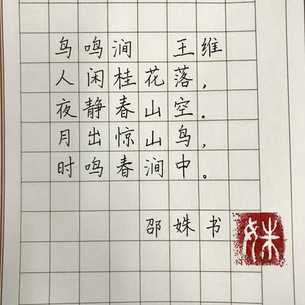 鸟鸣涧 王维
人闲桂花落，
夜静春山空．
月出惊山鸟，
时鸣春涧中。
邵姝书
姝